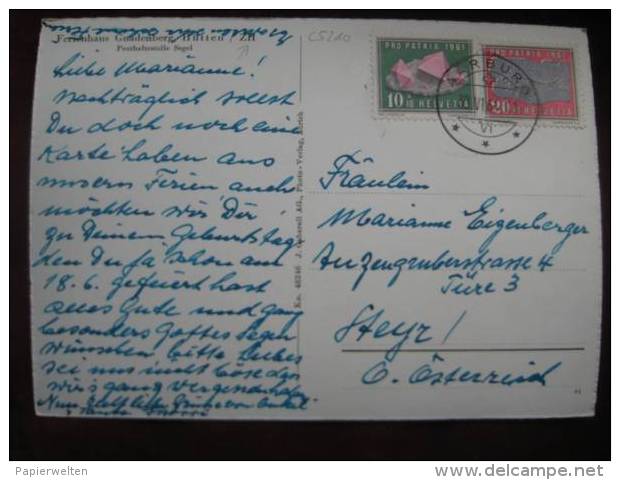 Ferienhaus Guldenberg, Hütten / ZH
Posthaltestelle Segel
C5210
Liebe Marianne!
Nachträglich sollst
Du doch noch eine
Karte haben aus
unsern Ferien auch
möchten wir Dir
zu Deinem Geburtstag
den Du ja schon am
18.6. gefeiert hast
alles Gute und ganz
besonders Gottes Segen
wünschen, bitte Liebes
sei uns nicht böse das
wir's ganz vergessen
Nun
PRO PATRIA 1961
10
HELVETIA
PRO PATRIA 1961
20
HELVETIA
VI
Fräulein
Marianne Eigenberger
Anzengruberstrasse 4
Türe 3
Steyr!
O. Österreich
J. Gaberell AG., Photo-Verlag,
Papierwelten
delcampe.net